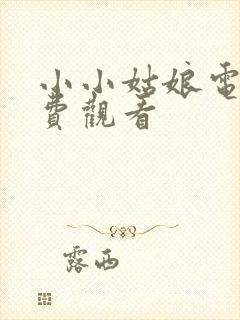 小小姑娘電
費觀看
露西